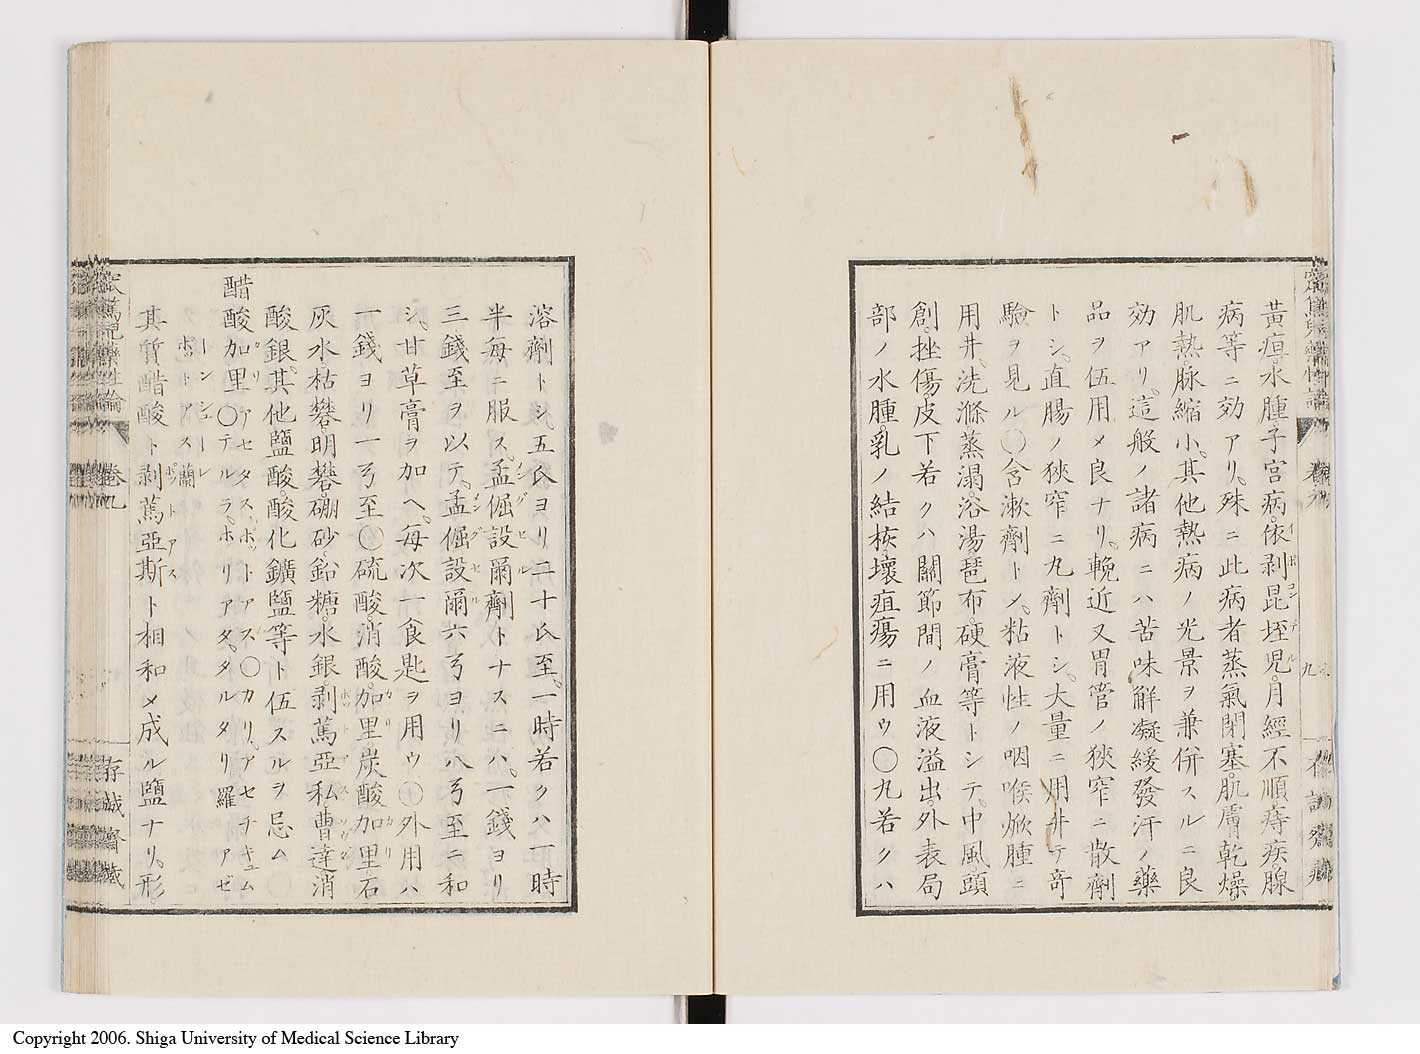 黃疸。水腫。子宮病。依剥昆垤児。月經不順痔疾。腺
病等ニ効アリ。殊ニ此病者蒸氣閉塞。肌膚乾燥。
肌熱脉縮小。其他熱病ノ光景ヲ兼併スルニ良
効アリ。這般ノ諸病ニハ苦味解凝緩發汗ノ藥
品ヲ伍用メ良ナリ。輓近又胃管ノ狹窄ニ散劑
トシ。直腸ノ狹窄ニ丸劑トシ。大量ニ用井テ奇
驗ヲ見ル○含漱劑トメ。粘液性ノ咽喉焮腫ニ
用井。洗滌蒸溻。浴湯琶布。硬膏等トシテ。中風頭
創。挫傷皮下若クハ關節間ノ血液溢出。外表局
部ノ水腫。乳ノ結核。壞疽瘍ニ用ウ○丸若クハ
卷九
九
溶劑トシ。五氏ヨリ二十氏至。一時若クハ一時
半每ニ服ス。孟倔設爾劑トナスニハ。一錢ヨリ
三錢至ヲ以テ。孟倔設爾六弓ヨリ八弓至ニ和
シ。甘草膏ヲ加ヘ。每次一食匙ヲ用ウ○外用ハ
一錢ヨリ一弓至○硫酸。消酸。加里炭酸加里石
灰水。枯礬。明礬。硼砂。鉛糖。水銀。剥篤亞私。曹達消
酸銀。其他鹽酸。酸化鑛鹽等ト伍スルヲ忌ム○
醋酸加里○アセタス、ポットアス○カリ、アセチキュム
○テルラ、ホリアタ、タルタリ羅 アゼ
ーンシューレ
ポトアス蘭
其質醋酸ト剥篤亞斯ト相和メ成ル鹽ナリ。形
卷九